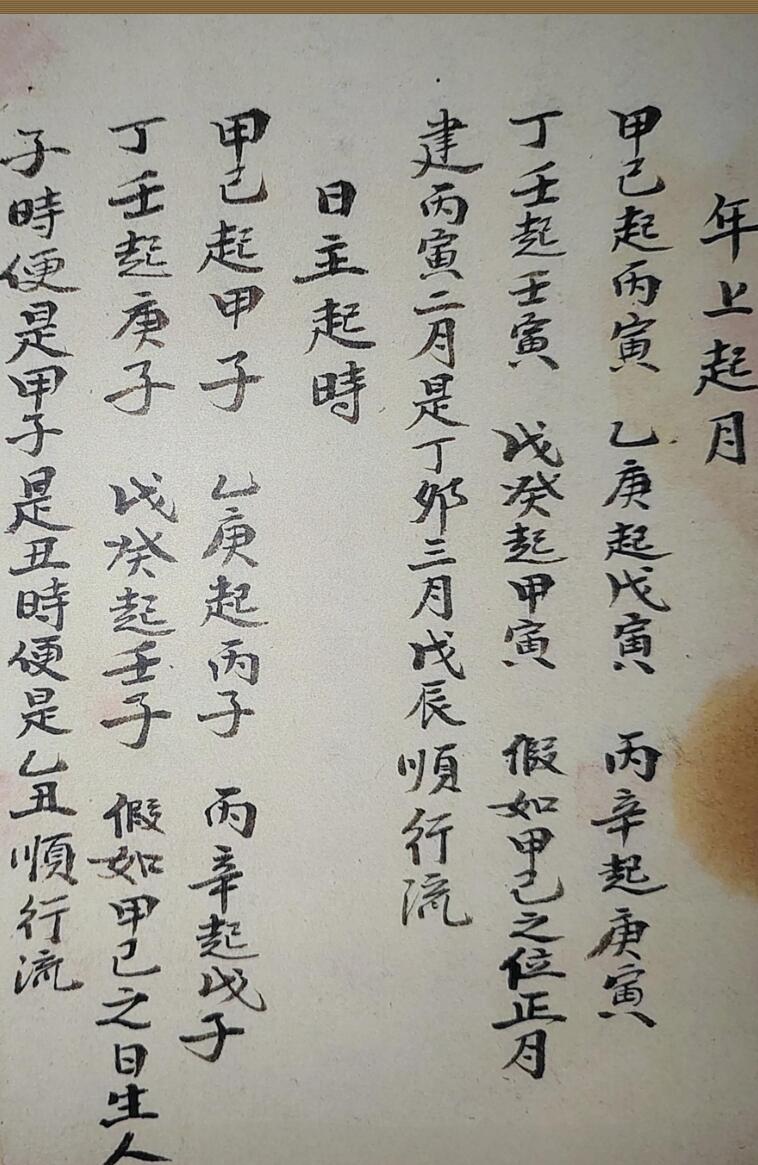 年上起月
甲己起丙寅 乙庚起戊寅 丙辛起庚寅
丁壬起壬寅 戊癸起甲寅 假如甲己之位正月
建丙寅二月是丁卯三月戊辰順行流
日主起時
甲己起甲子 乙庚起丙子 丙辛起戊子
丁壬起庚子 戊癸起壬子 假如甲己之日生人
子時便是甲子是丑時便是乙丑順行流